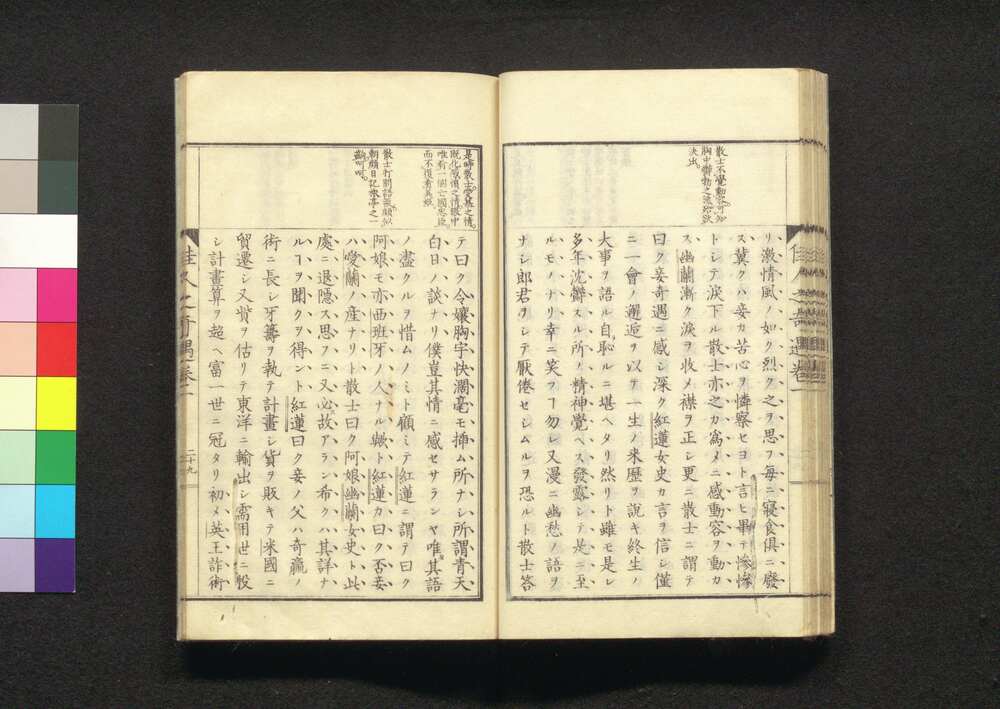 散士不覺動容可知
胸中鬱勃之涙殆欲
決出
リ激情風ノ如ク烈ク之ヲ思フ毎ニ寢食俱ニ廢
ス冀クハ妾カ苦心ヲ憐察セヨト言ヒ畢テ慘慘
トシテ淚下ル散士亦之カ爲メニ感動容ヲ動カ
ス幽蘭漸ク淚ヲ收メ襟ヲ正シ更ニ散士ニ謂テ
曰ク妾奇遇ニ感シ深ク紅蓮女史カ言ヲ信シ僅
ニ一會ノ邂逅ヲ以テ一生ノ来歷ヲ說キ終生ノ
大事ヲ語ル自ラ恥ルニ堪ヘタリ然リト雖モ是レ
多年沈鬱スル所ノ精神覺ヘス發露シテ是ニ至
ルモノナリ幸ニ笑フヿ勿レ又漫ニ幽愁ノ語ヲ
ナシ郎君ヲシテ厭倦セシムルヲ恐ルト散士答
佳人之奇遇卷一
是時散士愛慕之情
既化感憤之情眼中
唯看一個亡國忠臣
而不復看美姬
テ曰ク令孃胸宇快濶毫モ挿ム所ナシ所謂青天
白日ノ談ナリ僕豈其情ニ感セサランヤ唯其語
ノ盡クルヲ惜ムノミト顧ミテ紅蓮ニ謂テ曰ク
阿娘モ亦西班牙ノ人ナル歟ト紅蓮カ曰ク否妾
ハ愛蘭ノ産ナリト散士曰ク阿娘幽蘭女史ト此
處ニ退隱ス思フニ又必故アラン希クハ其詳ナ
ルヿヲ聞クヲ得ント紅蓮曰ク妾ノ父ハ奇贏ノ
術ニ長シ牙籌ヲ執テ計畫シ貨ヲ販キテ米國ニ
貿遷シ又貲ヲ估リテ東洋ニ輸出シ需用世ニ投
シ計畫算ヲ超ヘ富一世ニ冠タリ初メ英王詐術
佳人之奇遇卷一
二十九